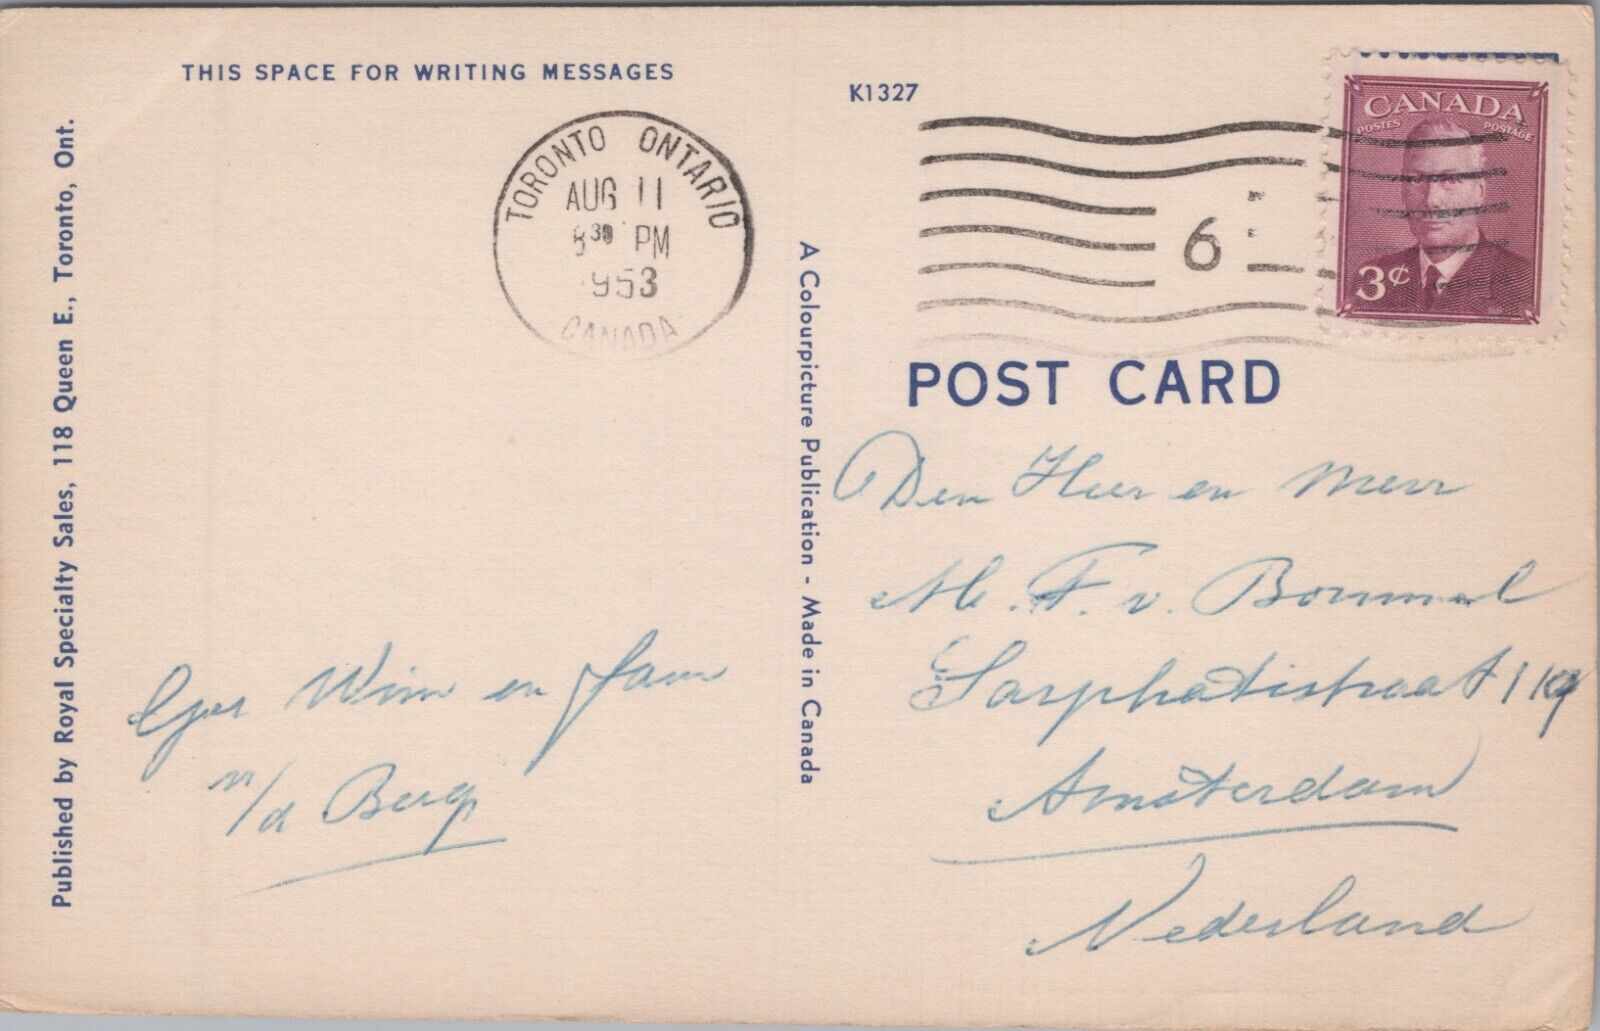 THIS SPACE FOR WRITING MESSAGES
K1327
TORONTO ONTARIO
AUG 11
8 30 PM
1953
CANADA
6
CANADA
POSTES POSTAGE
3¢
POST CARD
Published by Royal Specialty Sales, 118 Queen E., Toronto, Ont.
A Colourpicture Publication - Made in Canada
Wim en
v/d Berg
Den Heer en Mevr
M. F. v. Bommel
Sarphatistraat
Amsterdam
Nederland